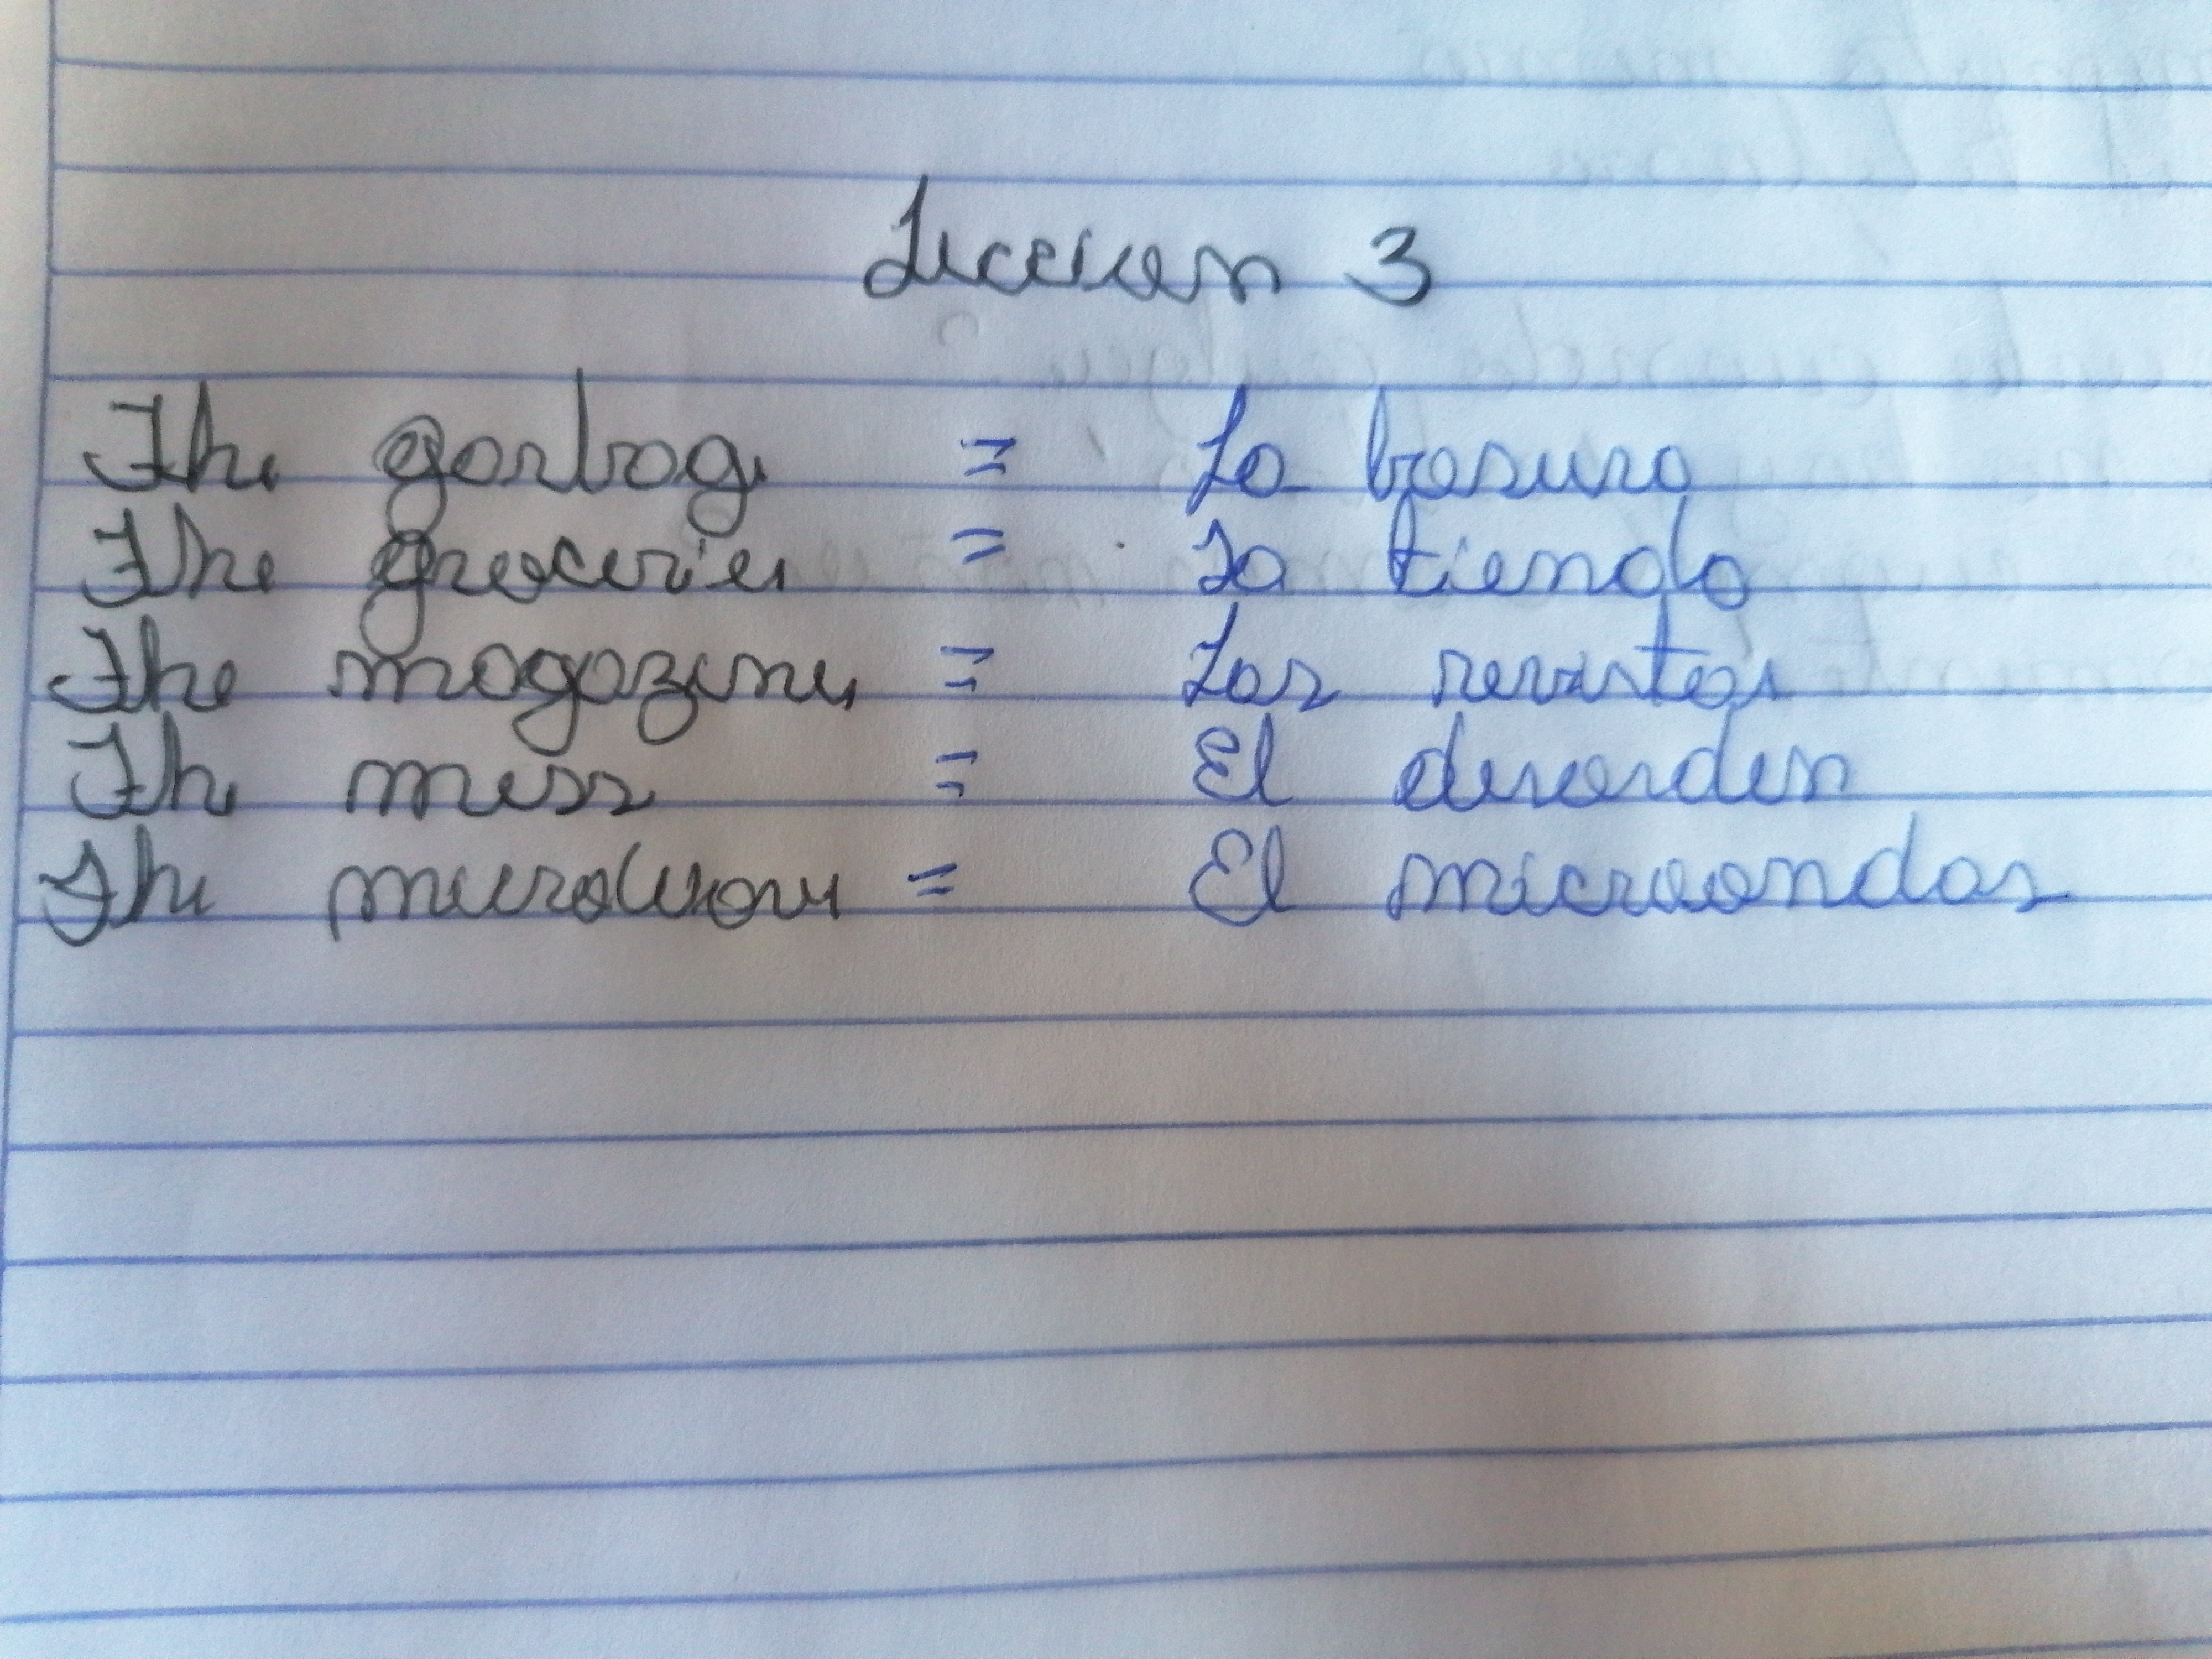 Leccion 3
The garbage = La basura
The groceries = La tienda
The magazines = Las revistas
The mess = El desorden
The microwave = El microondas